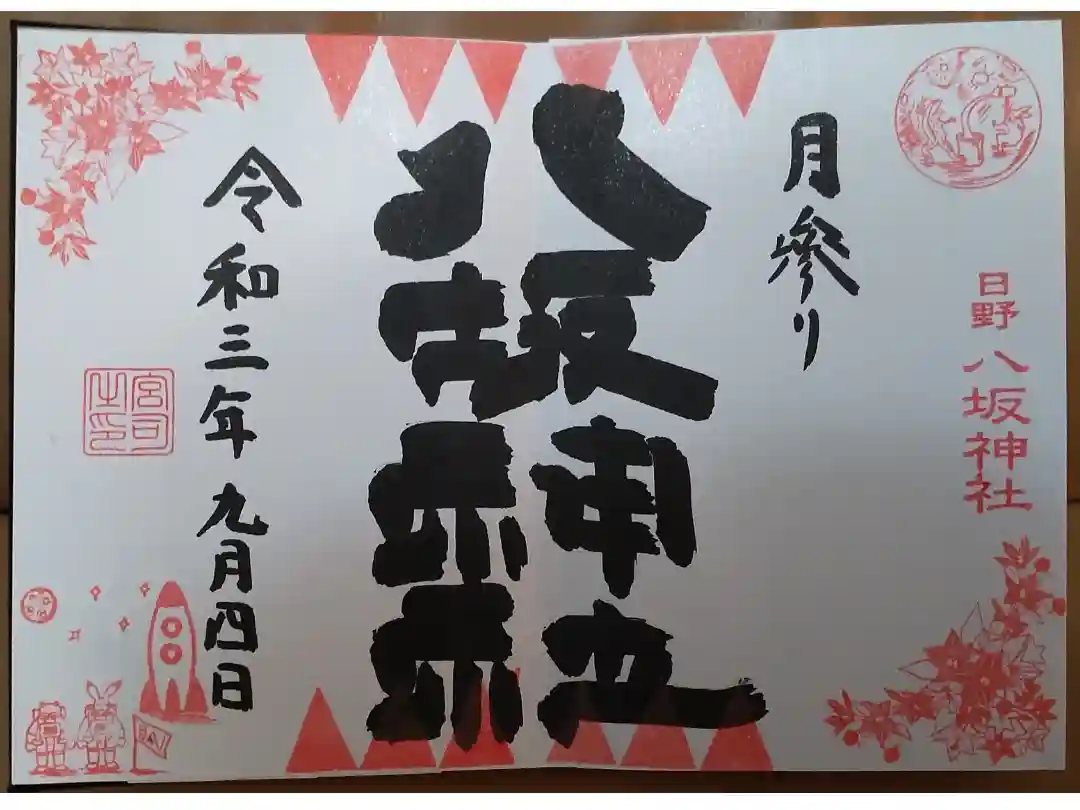 日野八坂神社
月参り
八坂神社
令和三年九月四日
宮司之印